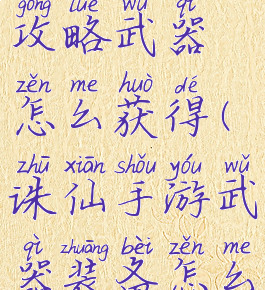 gōng lüè wǔ qì
攻略武器
zěn me huò dé
怎么获得(
zhū xiān shǒu yóu wǔ
诛仙手游武
qì zhuāng bèi zěn me
器装备怎么